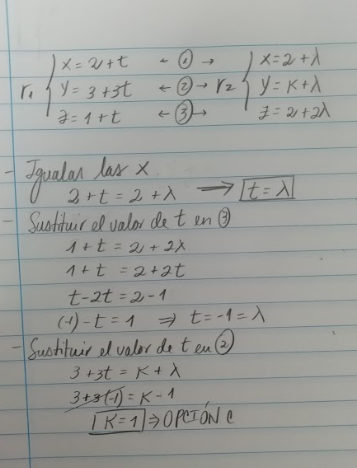 r₁ { x = 2+t ← ① → r₂ { x = 2+λ
y = 3+3t ← ② → y = K+λ
z = 1+t ← ③ → z = 2+2λ
- Igualas las x
2+t = 2+λ ⟹ t = λ
- Sustituir el valor de t en ③
1+t = 2+2λ
1+t = 2+2t
t-2t = 2-1
(-1)-t = 1 ⟹ t = -1 = λ
- Sustituir el valor de t en ②
3+3t = K+λ
3+3(-1) = K-1
K=1 ⟹ OPCIÓN C